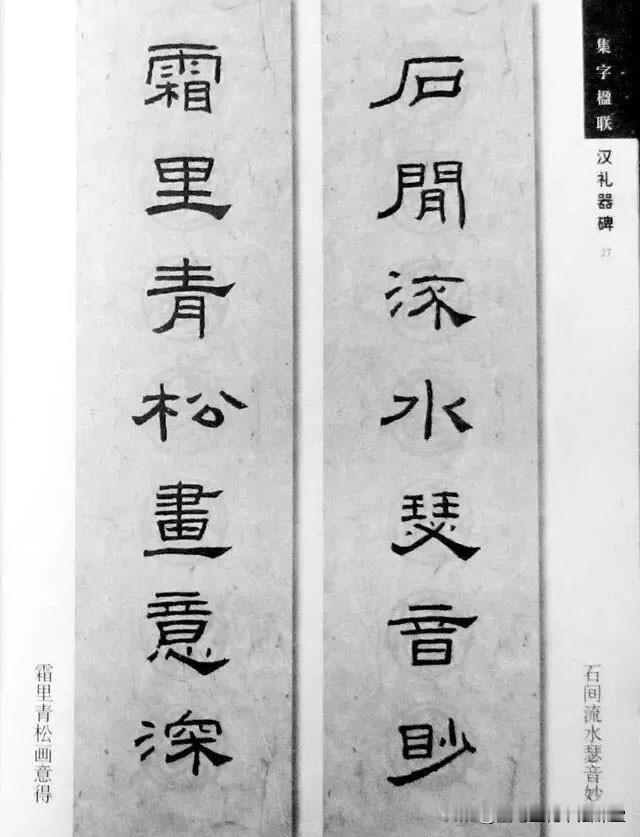 集字楹联 汉礼器碑
27
石閒流水瑟音眇
石间流水瑟音妙
霜里青松畫意深
霜里青松画意得